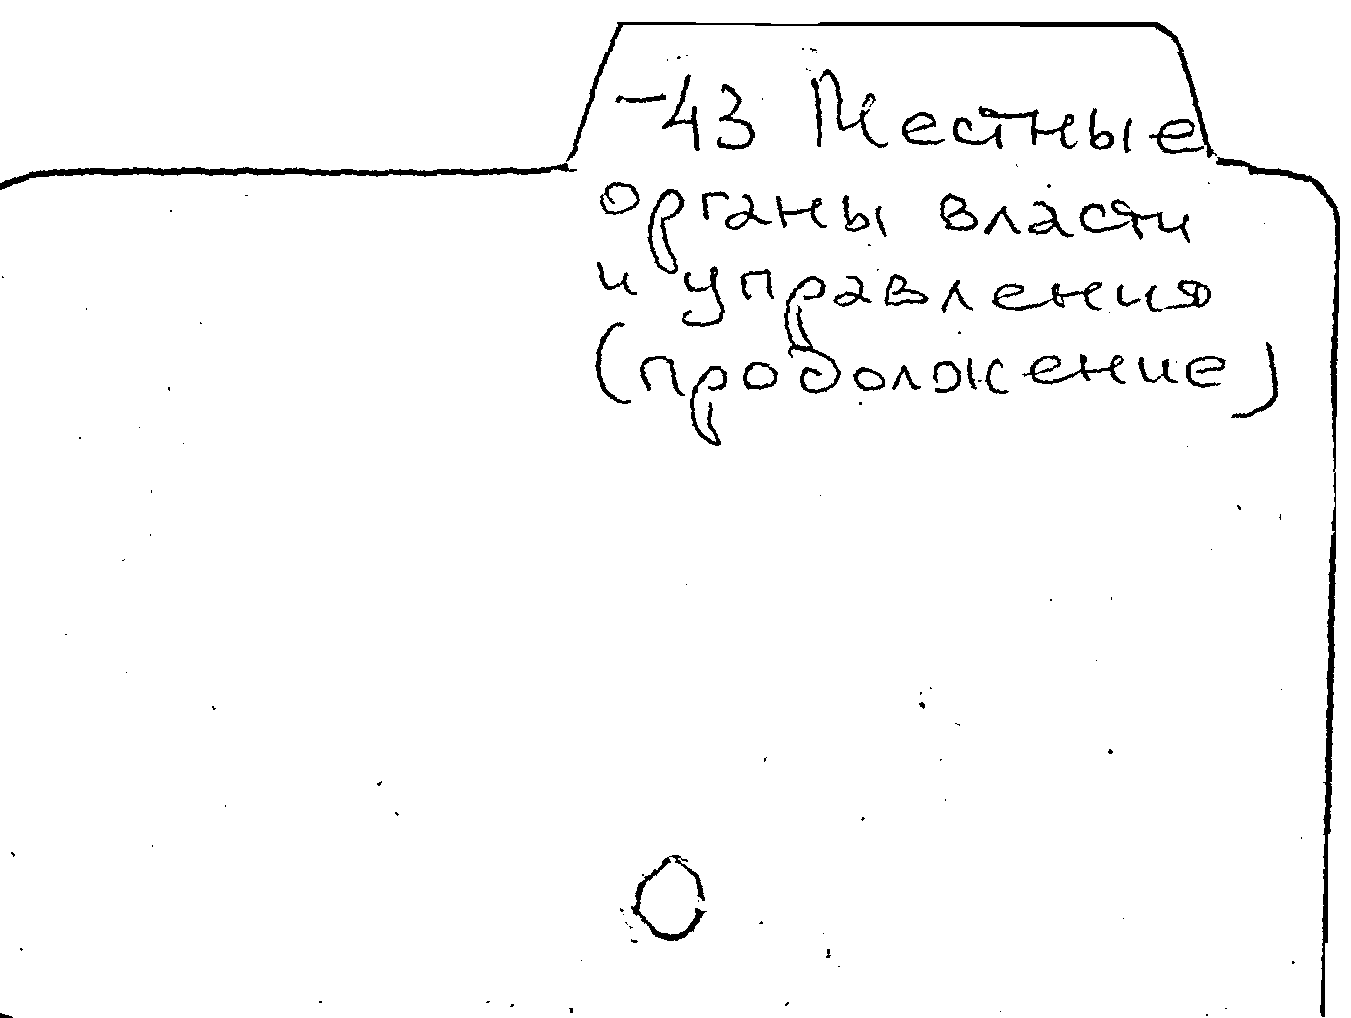 -43 Местные
органы власти
и управления
(продолжение)